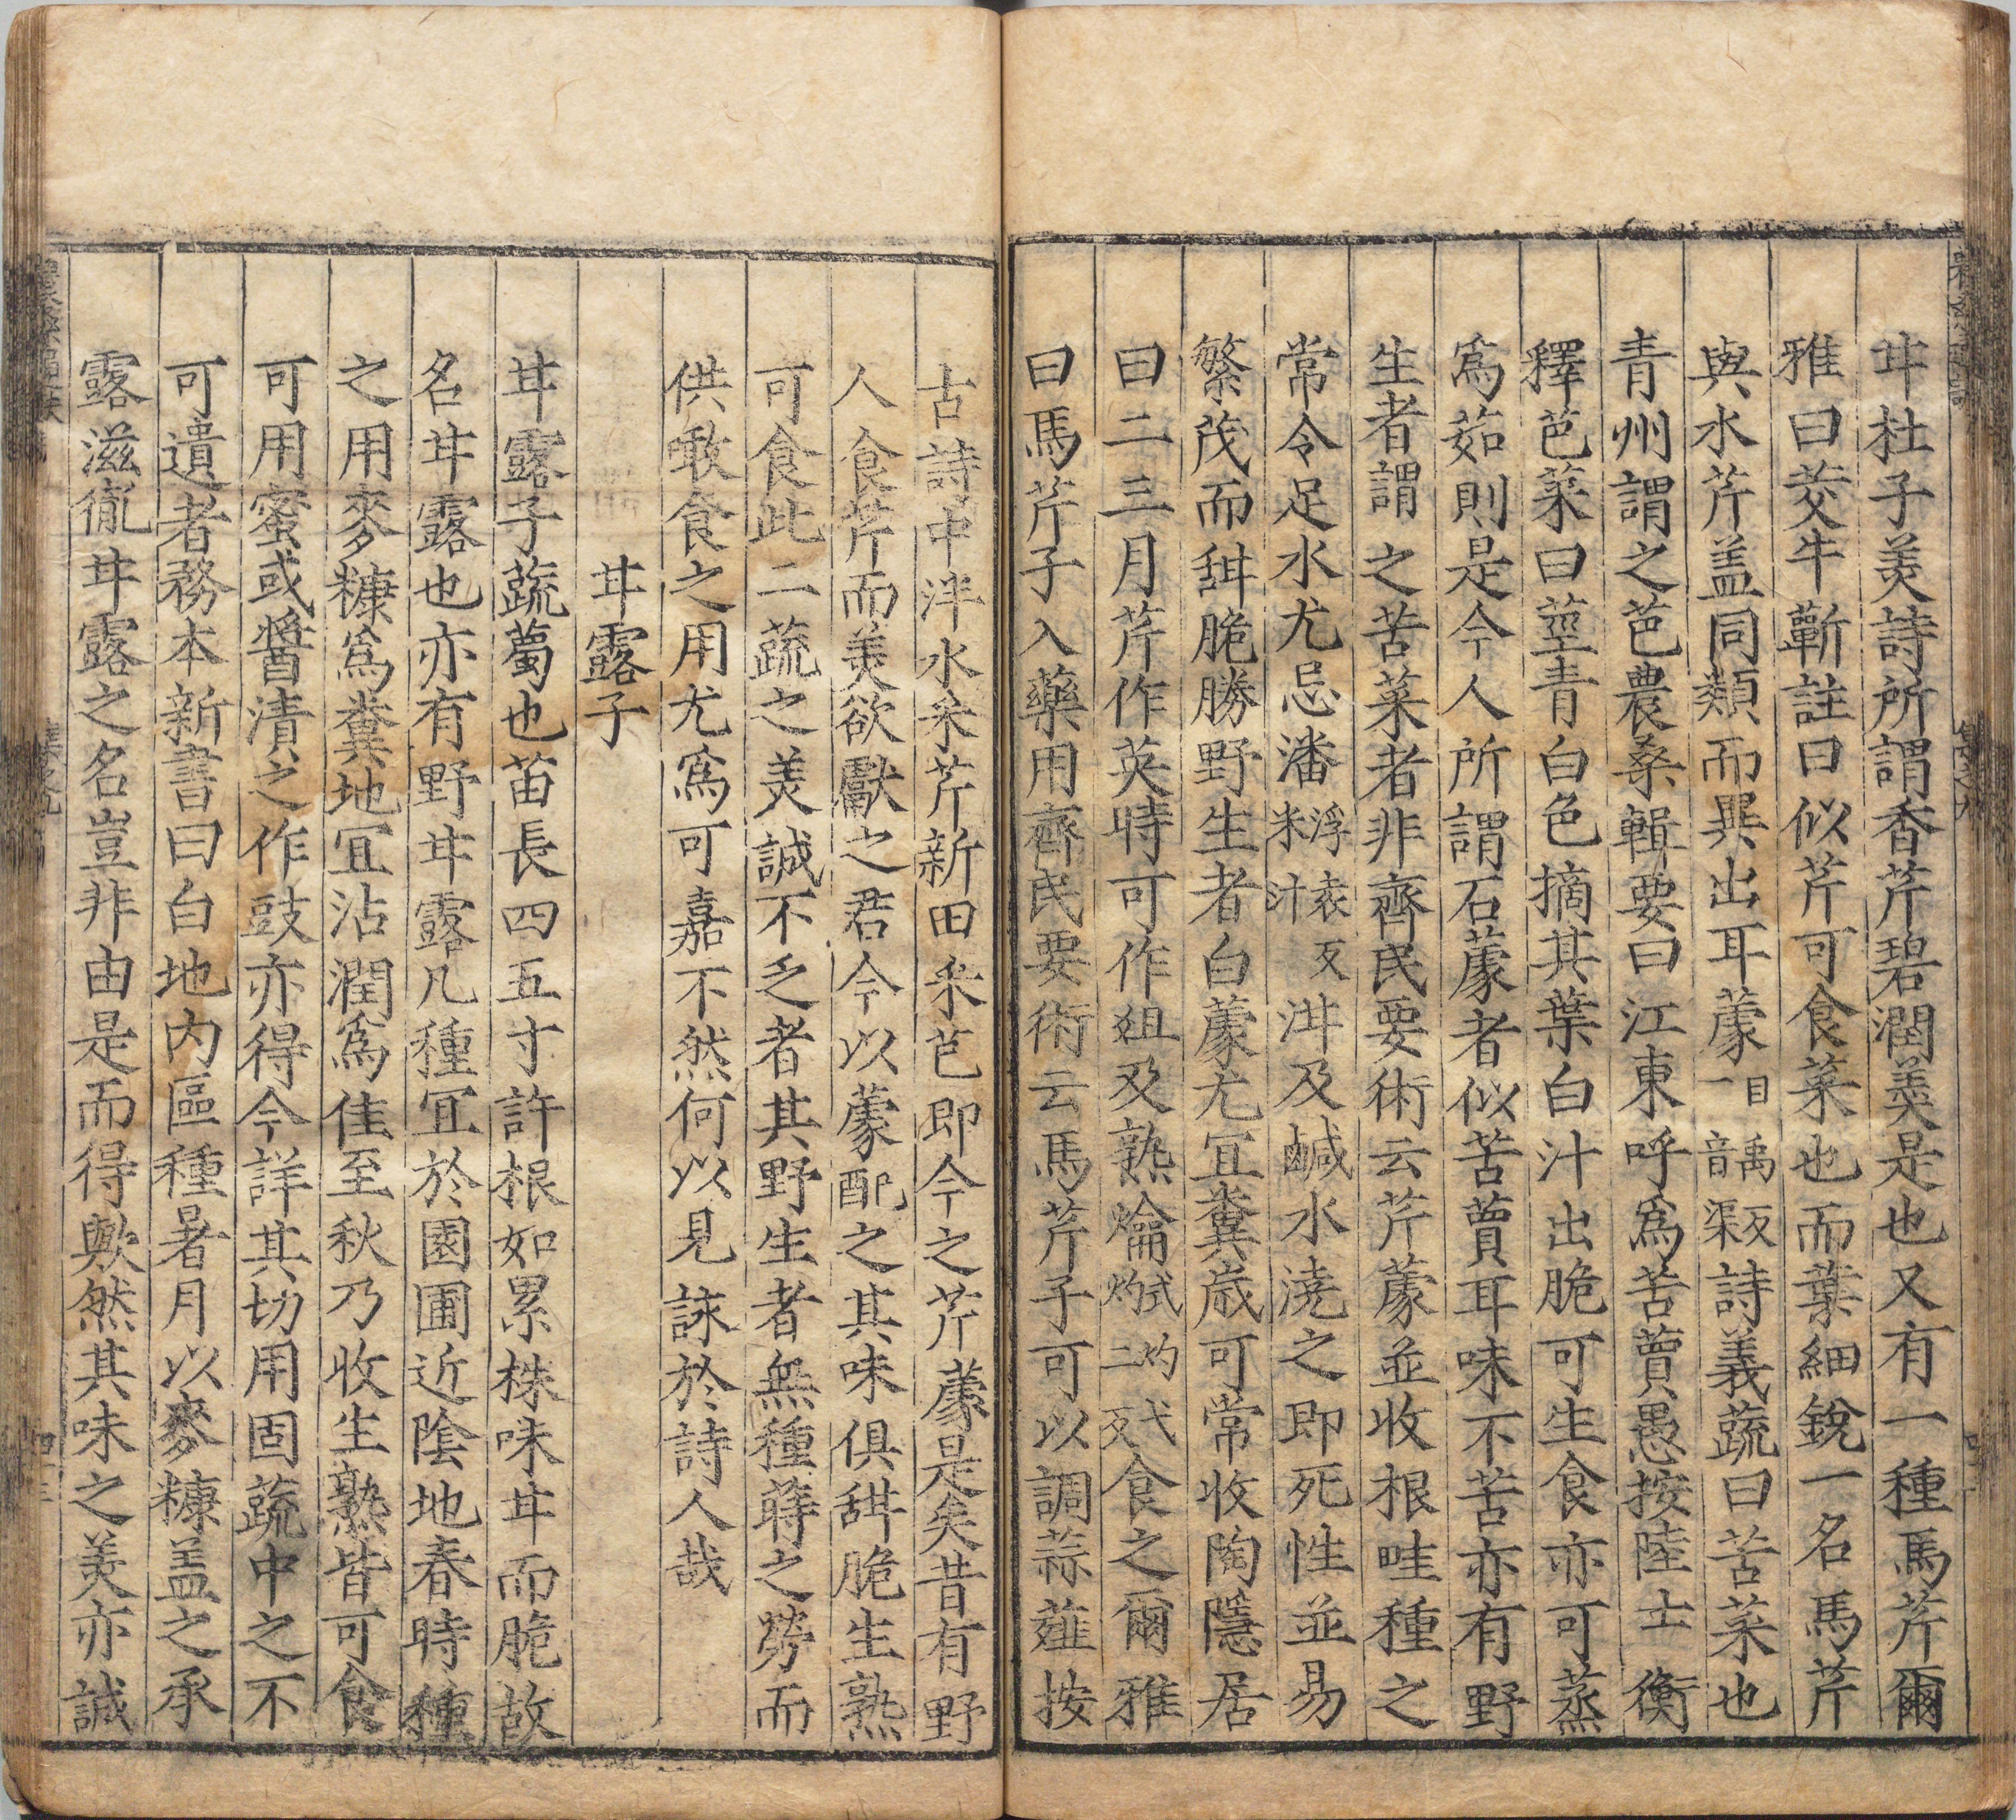 甘杜子美詩所謂香芹碧澗羮是也又有一種馬芹爾
雅曰茭牛蘄註曰似芹可食菜也而葉細銳一名馬芹
與水芹盖同類而異出耳蘪一目音禹渠反詩義蔬曰苦菜也
青州謂之芑農桑輯要曰江東呼爲苦藚愚按陸士衡
釋芑菜曰莖青白色摘其葉白汁出脆可生食亦可蒸
爲茹則是今人所謂石蘪者似苦藚耳味不苦亦有野
生者謂之苦菜者非齊民要術云芹蘪並收根畦種之
常令足水尤忌潘米汁浮袁反泔及鹹水澆之即死性並易
繁茂而甜脆勝野生者白蘪尤冝糞歳可常收陶隱居
曰二三月芹作英時可作葅及熟爚煠二灼弋反食之爾雅
曰馬芹子入藥用齊民要術云馬芹子可以調蒜薤按
古詩中泮水采芹新田采芑即今之芹蘪是矣昔有野
人食芹而美欲獻之君今以蘪配之其味俱甜脆生熟
可食此二蔬之美誠不乏者其野生者無種蒔之勞而
供敢食之用尤爲可嘉不然何以見詠於詩人哉
甘露子
甘露子蔬蔔也苗長四五寸許根如累株味甘而脆故
名甘露也亦有野甘露凡種冝於園圃近陰地春時種
之用麥糠爲糞地冝沾潤爲佳至秋乃收生熟皆可食
可用蜜或醬漬之作豉亦得今詳其切用固蔬中之不
可遺者務本新書曰白地内區種暑月以麥糠盖之承
露滋胤甘露之名豈非由是而得歟然其味之美亦誠